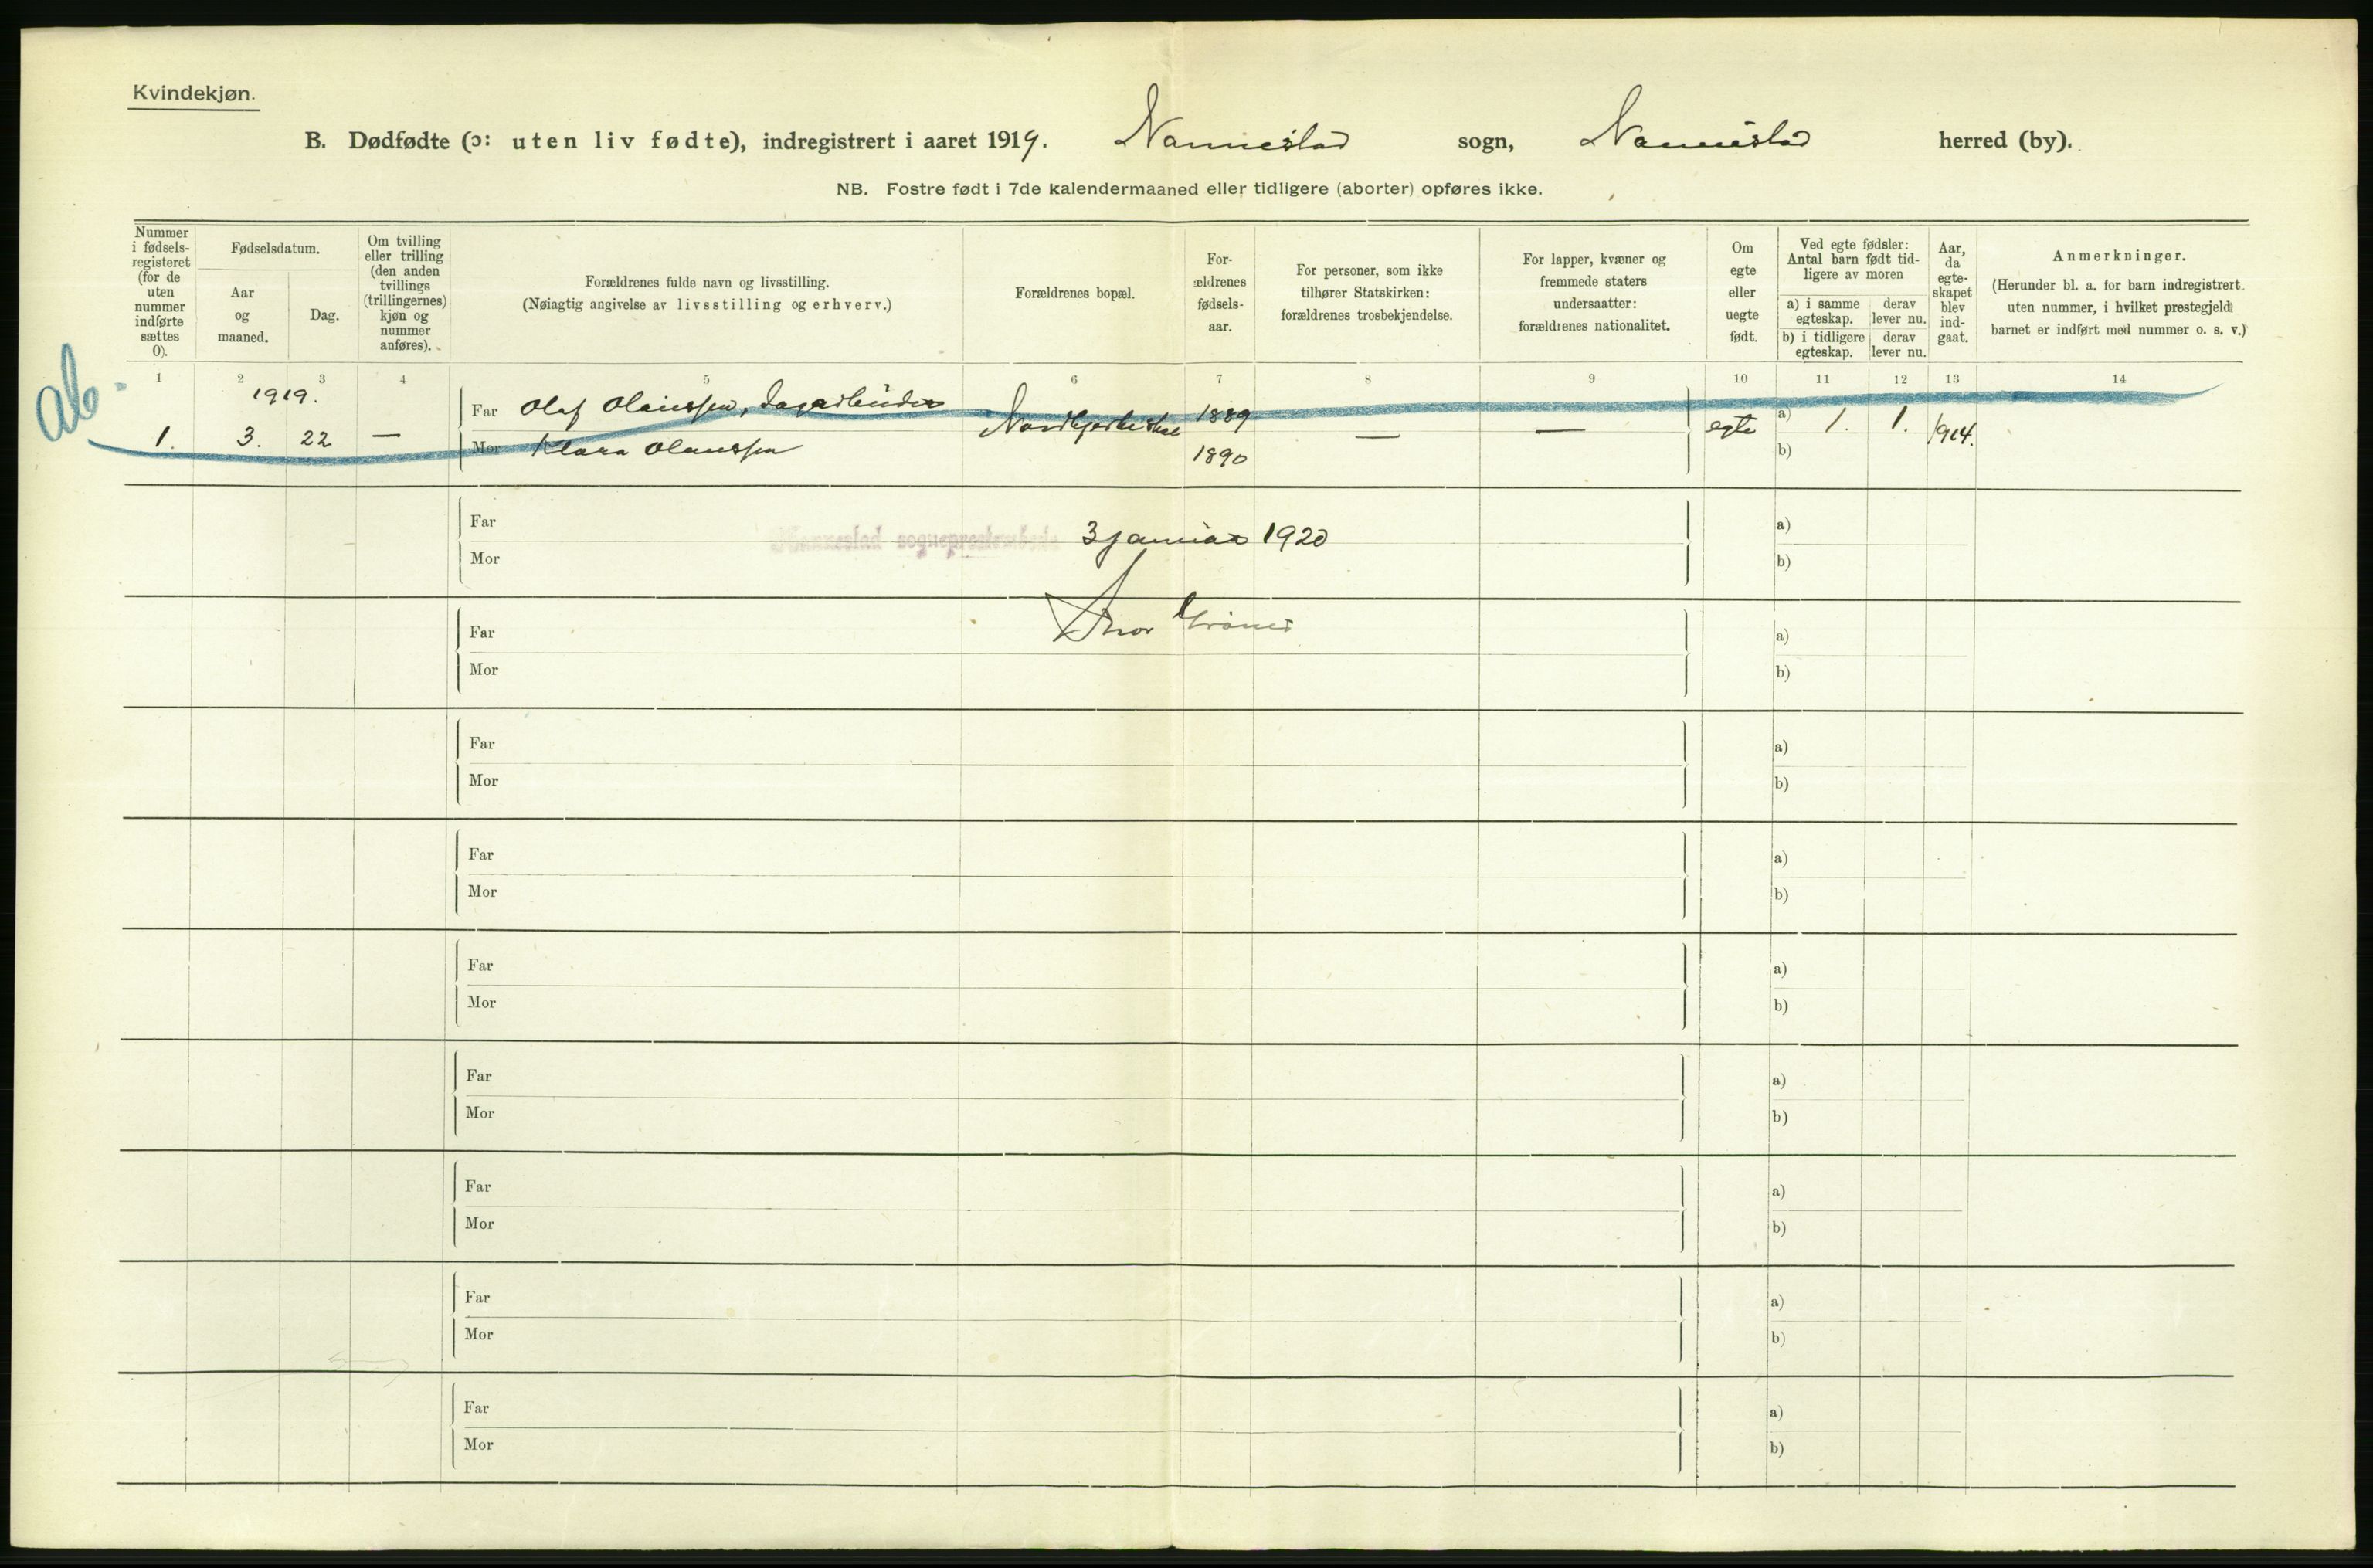 Kvindekjøn.
B. Dødfødte (ɔ: uten liv fødte), indregistrert i aaret 1919. Nannestad sogn, Nannestad herred (by).
NB. Fostre født i 7de kalendermaaned eller tidligere (aborter) opføres ikke.
Nummer i fødsels-registeret (for de uten nummer indførte sættes 0).
Fødselsdatum.
Aar og maaned.
Dag.
Om tvilling eller trilling (den anden tvillings (trillingernes) kjøn og nummer anføres).
Forældrenes fulde navn og livsstilling.
(Nøiagtig angivelse av livsstilling og erhverv.)
Forældrenes bopæl.
For-ældrenes fødsels-aar.
For personer, som ikke tilhører Statskirken: forældrenes trosbekjendelse.
For lapper, kvæner og fremmede staters undersaatter: forældrenes nationalitet.
Om egte eller uegte født.
Ved egte fødsler: Antal barn født tid-ligere av moren
a) i samme egteskap.
derav lever nu.
b) i tidligere egteskap.
derav lever nu.
Aar, da egte-skapet blev ind-gaat.
Anmerkninger.
(Herunder bl. a. for barn indregistrert uten nummer, i hvilket prestegjeld barnet er indført med nummer o. s. v.)
1 2 3 4 5 6 7 8 9 10 11 12 13 14
ab.
1919.
Far Olaf Olaussen, dagarbeider 1889
1. 3. 22 — — — egte a) 1. 1. 1914.
Mor Klara Olaussen 1890 b)
Far a)
Nannestad sogneprestembede 3 januar 1920
Mor b)
Far a)
Mor b)
Far a)
Mor b)
Far a)
Mor b)
Far a)
Mor b)
Far a)
Mor b)
Far a)
Mor b)
Far a)
Mor b)
Far a)
Mor b)